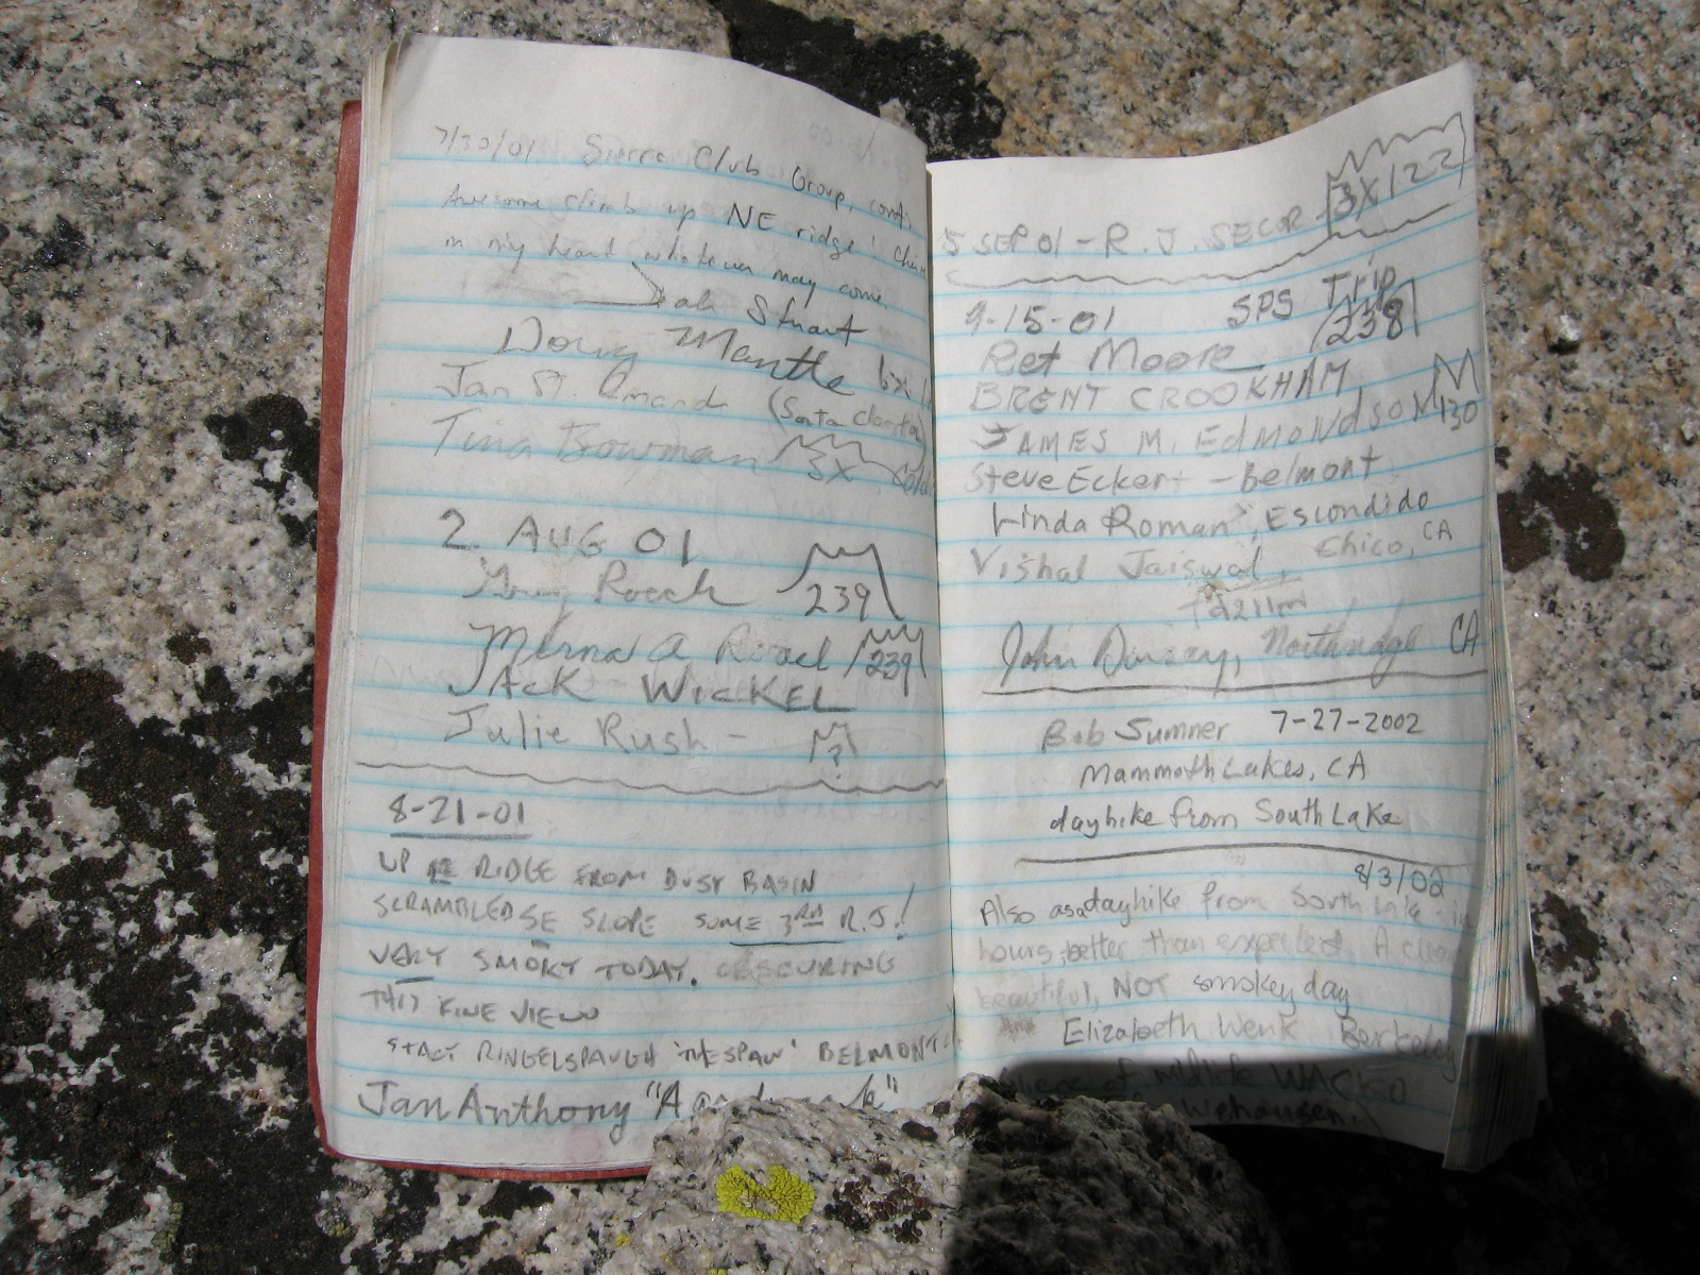 7/30/01 Sierra Club Group, cont.
Awesome climb up NE ridge!
in my heart whatever may come
Stuart
Doug Mantle
Jan St. Amand (Santa Clarita)
Tina Bowman 3X
2. AUG 01
Roach 239
Roach 239
JACK WICKEL
Julie Rush - ?
8-21-01
UP RIDGE FROM DUSY BASIN
SCRAMBLED SE SLOPE SOME 3RD R.J.!
VERY SMOKY TODAY. OBSCURING
THIS FINE VIEW
RINGELSPAUGH "THE SPAW" BELMONT
Jan Anthony
5 SEP 01 - R. J. SECOR 3X122
9-15-01 SPS Trip
Ret Moore 238
BRENT CROOKHAM
JAMES M. EDMONDSON 130
Steve Eckert - Belmont
Linda Roman, Escondido
Vishal Jaiswal, Chico, CA
John Northridge CA
Bob Sumner 7-27-2002
Mammoth Lakes, CA
dayhike from South Lake
8/3/02
Also as a dayhike from South Lake - in
hours, better than expected. A
beautiful, NOT smokey day
Elizabeth Wenk Berkeley
of WACKO
Wehausen.